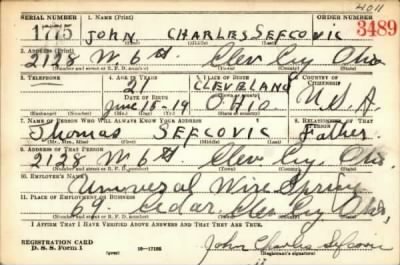 4011
SERIAL NUMBER 1. NAME (Print) ORDER NUMBER
1775 JOHN CHARLES SEFCOVIC 3489
(First) (Middle) (Last)
2. ADDRESS (Print)
2128 W. 6 St. Clev Cuy Ohio
(Number and street or R. F. D. number) (Town) (County) (State)
3. TELEPHONE 4. AGE IN YEARS 5. PLACE OF BIRTH 6. COUNTRY OF CITIZENSHIP
21 CLEVELAND
DATE OF BIRTH (Town or county)
June 16-19 OHIO U.S.A.
(Exchange) (Number) (Mo.) (Day) (Yr.) (State or country)
7. NAME OF PERSON WHO WILL ALWAYS KNOW YOUR ADDRESS 8. RELATIONSHIP OF THAT PERSON
Thomas Sefcovic Father
(Mr., Mrs., Miss) (First) (Middle) (Last)
9. ADDRESS OF THAT PERSON
2128 W 6 St. Clev Cuy. Ohio
(Number and street or R. F. D. number) (Town) (County) (State)
10. EMPLOYER'S NAME
Universal Wire Spring
11. PLACE OF EMPLOYMENT OR BUSINESS
Cedar Clev Cuy Ohio
(Number and street or R. F. D. number) (Town) (County) (State)
I AFFIRM THAT I HAVE VERIFIED ABOVE ANSWERS AND THAT THEY ARE TRUE.
REGISTRATION CARD
D. S. S. Form 1 (over) 16—17105 John Charles Sefcovic
(Registrant's signature)